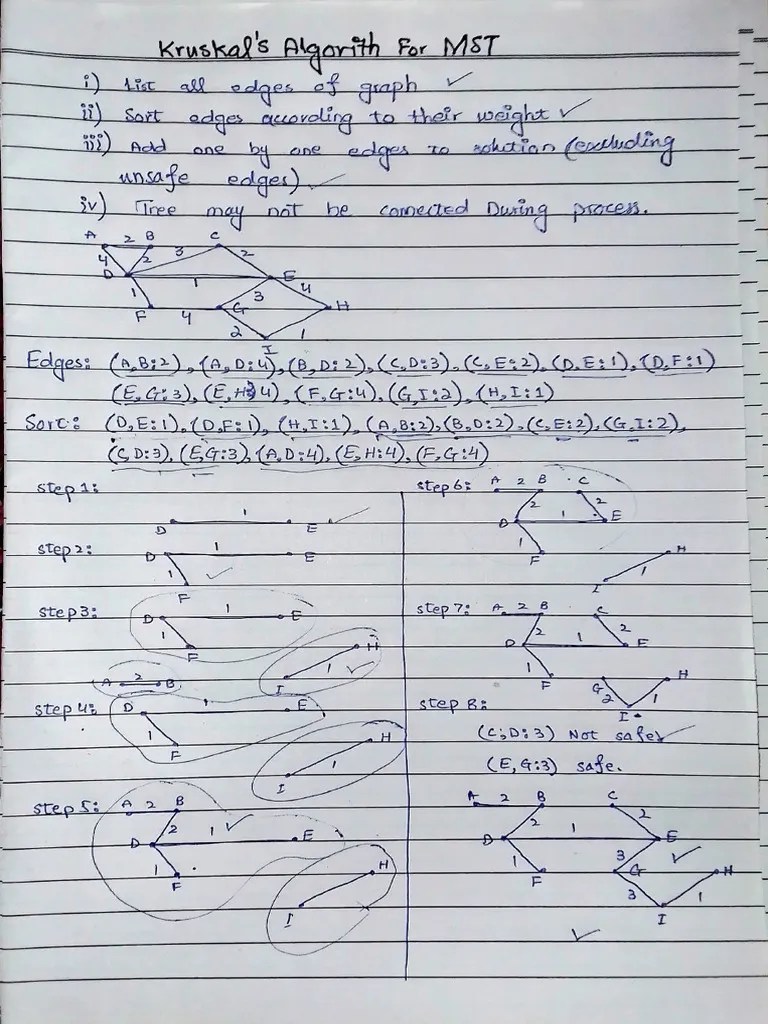 Kruskal's Algorith For MST
i) List all edges of graph ✓
ii) Sort edges according to their weight ✓
iii) Add one by one edges to solution (excluding
unsafe edges) ✓
iv) Tree may not be connected During process.
A 2 B C
4 2 3 2
D 1 E
1 3 4
F 4 G H
2 1
I
Edges: (A,B:2), (A,D:4), (B,D:2), (C,D:3), (C,E:2), (D,E:1), (D,F:1)
(E,G:3), (E,H:4), (F,G:4), (G,I:2), (H,I:1)
Sort: (D,E:1), (D,F:1), (H,I:1), (A,B:2), (B,D:2), (C,E:2), (G,I:2),
(C,D:3), (E,G:3), (A,D:4), (E,H:4), (F,G:4)
step 1:
D 1 E ✓
step 2:
D 1 E
1 ✓
F
step 3:
D 1 E
1
F H
I 1 ✓
A 2 B
step 4:
D 1 E
1
F H
I 1
step 5:
A 2 B
2
D 1 ✓ E
1
F H
I
step 6:
A 2 B C
2 2
D 1 E
1
F H
I 1
step 7:
A 2 B C
2 2
D 1 E
1
F G H
2 1
I
step 8:
(C,D:3) Not safe ✓
(E,G:3) safe.
A 2 B C
2 2
D 1 E
1 3 ✓
F G H
3 1
I
✓